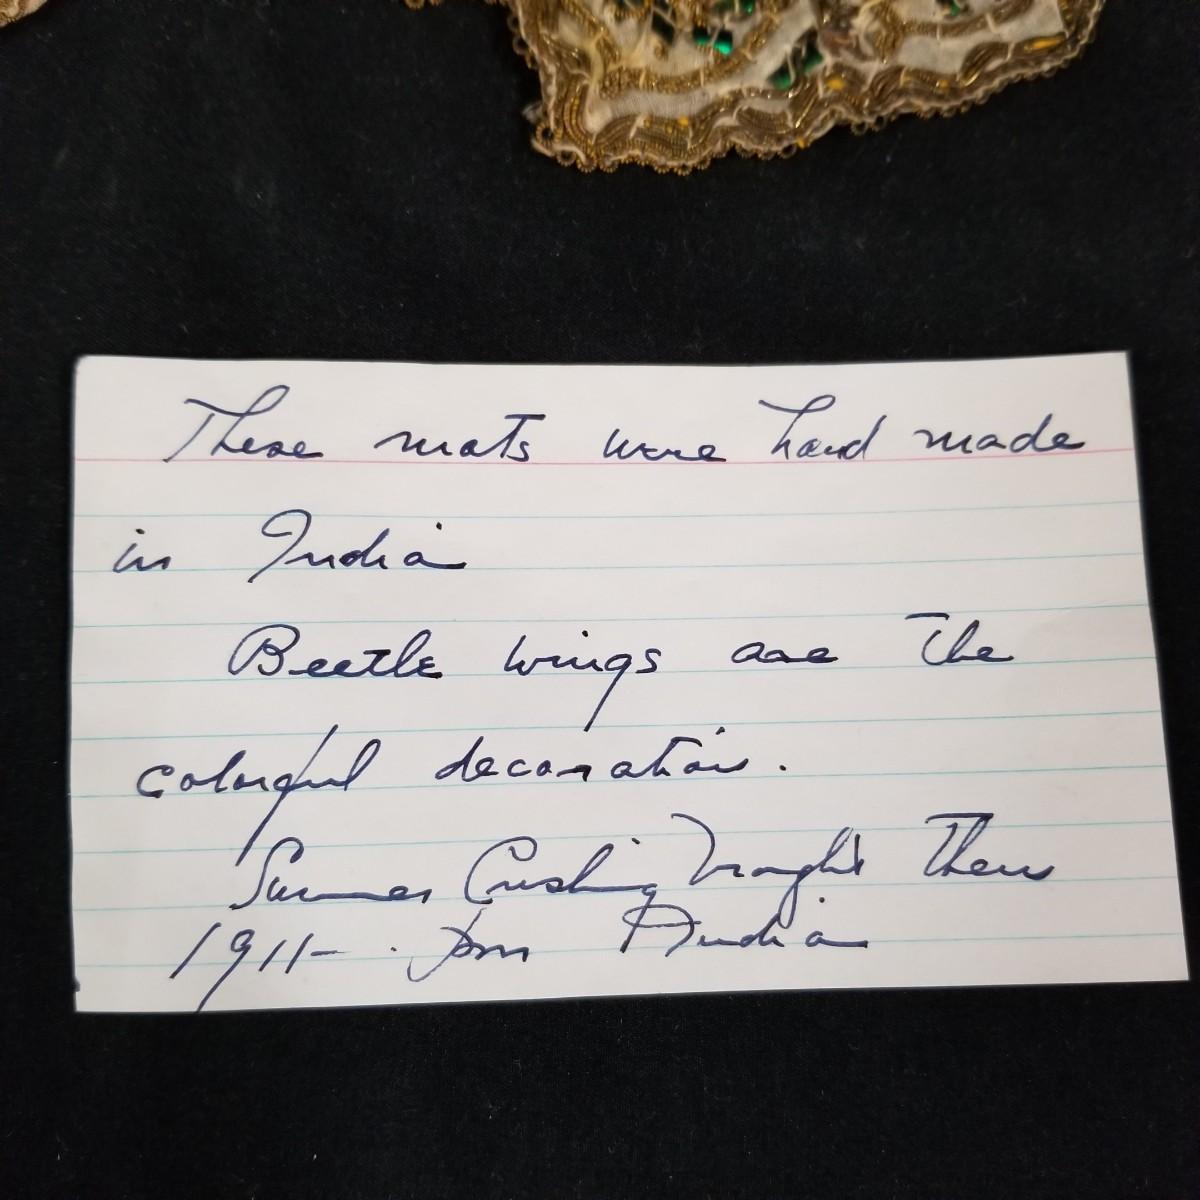 These mats were hand made
in India
Beetle wings are the
colorful decoration.
Sumner Cushing brought them
1911- . from India